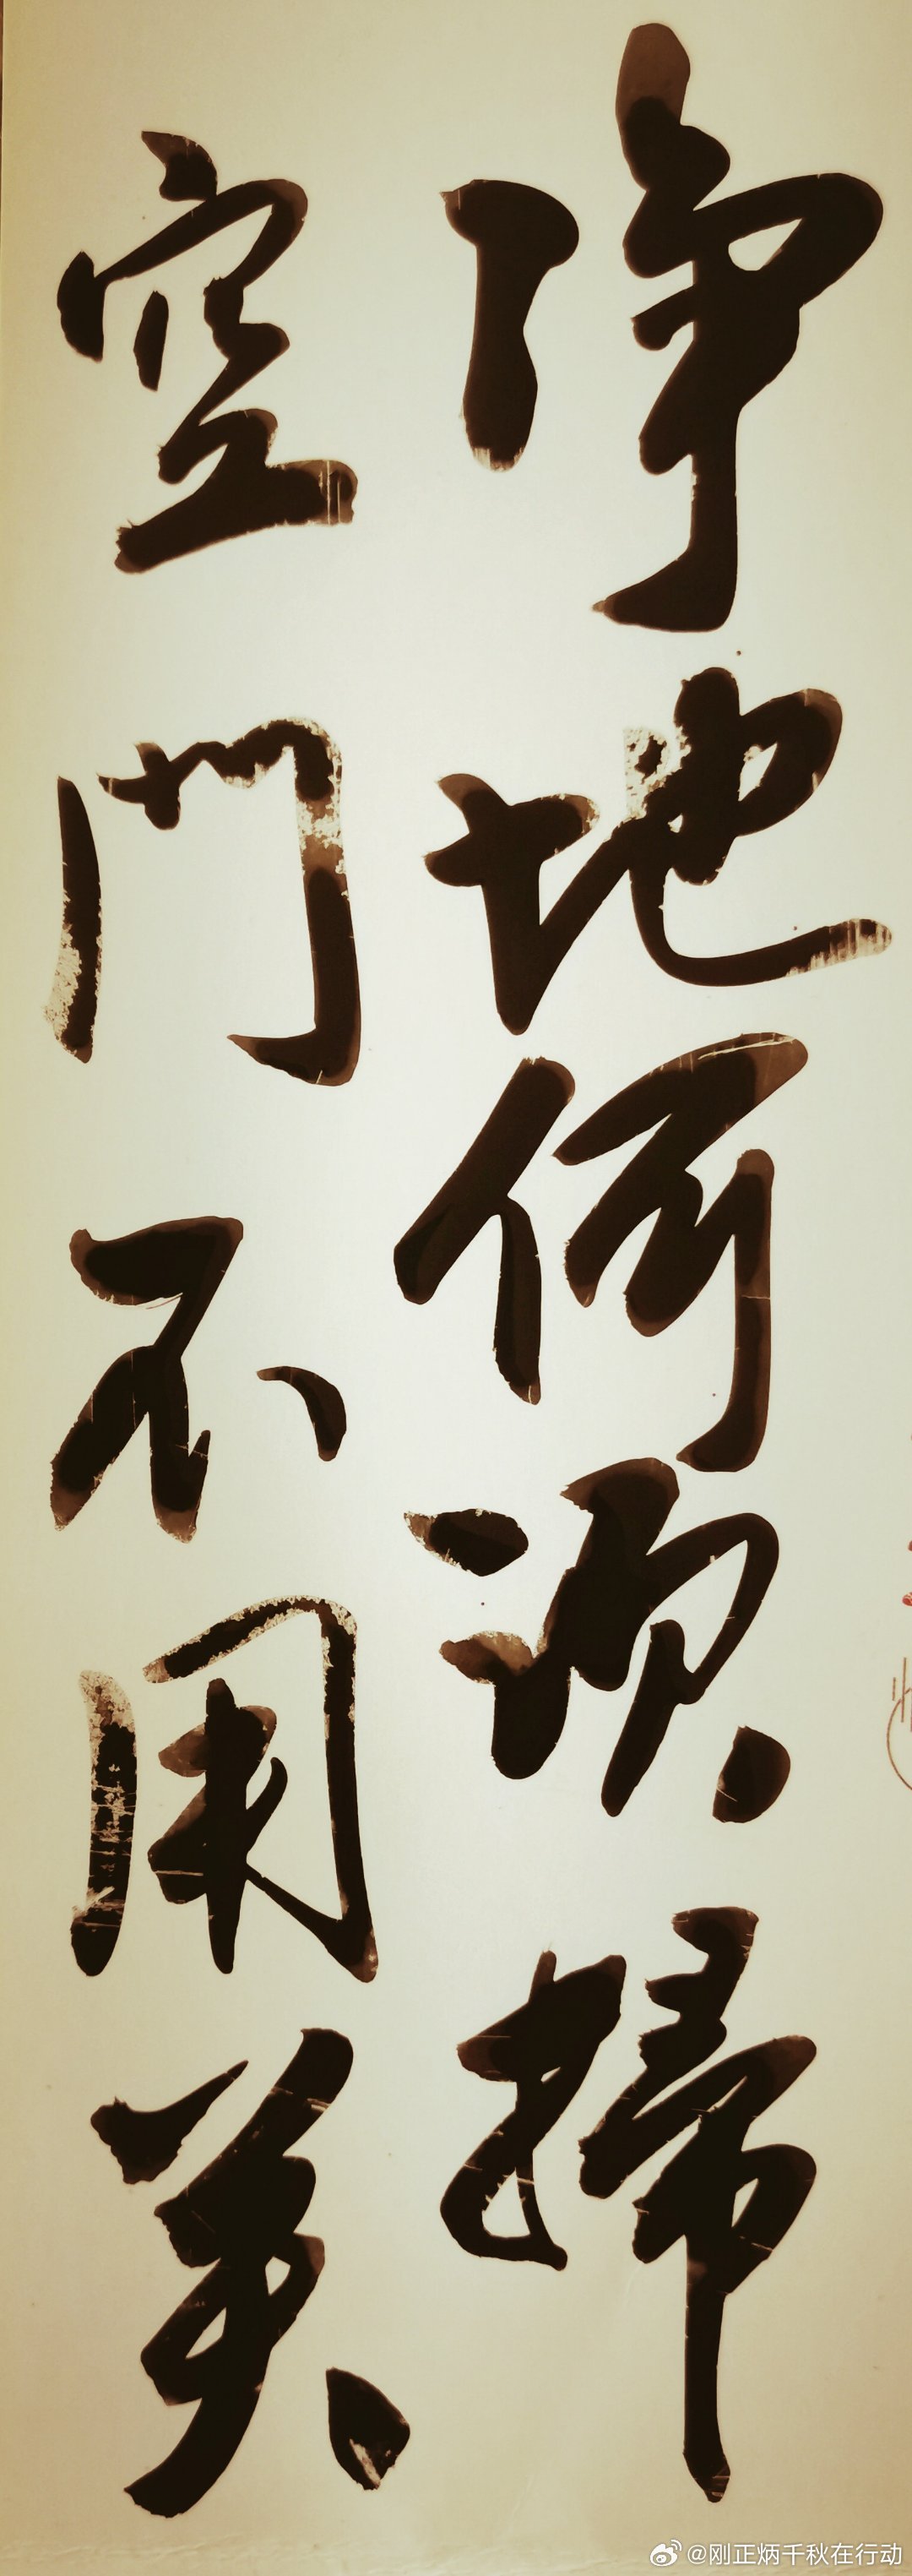 净地何须掃
空門不用关
@刚正炳千秋在行动